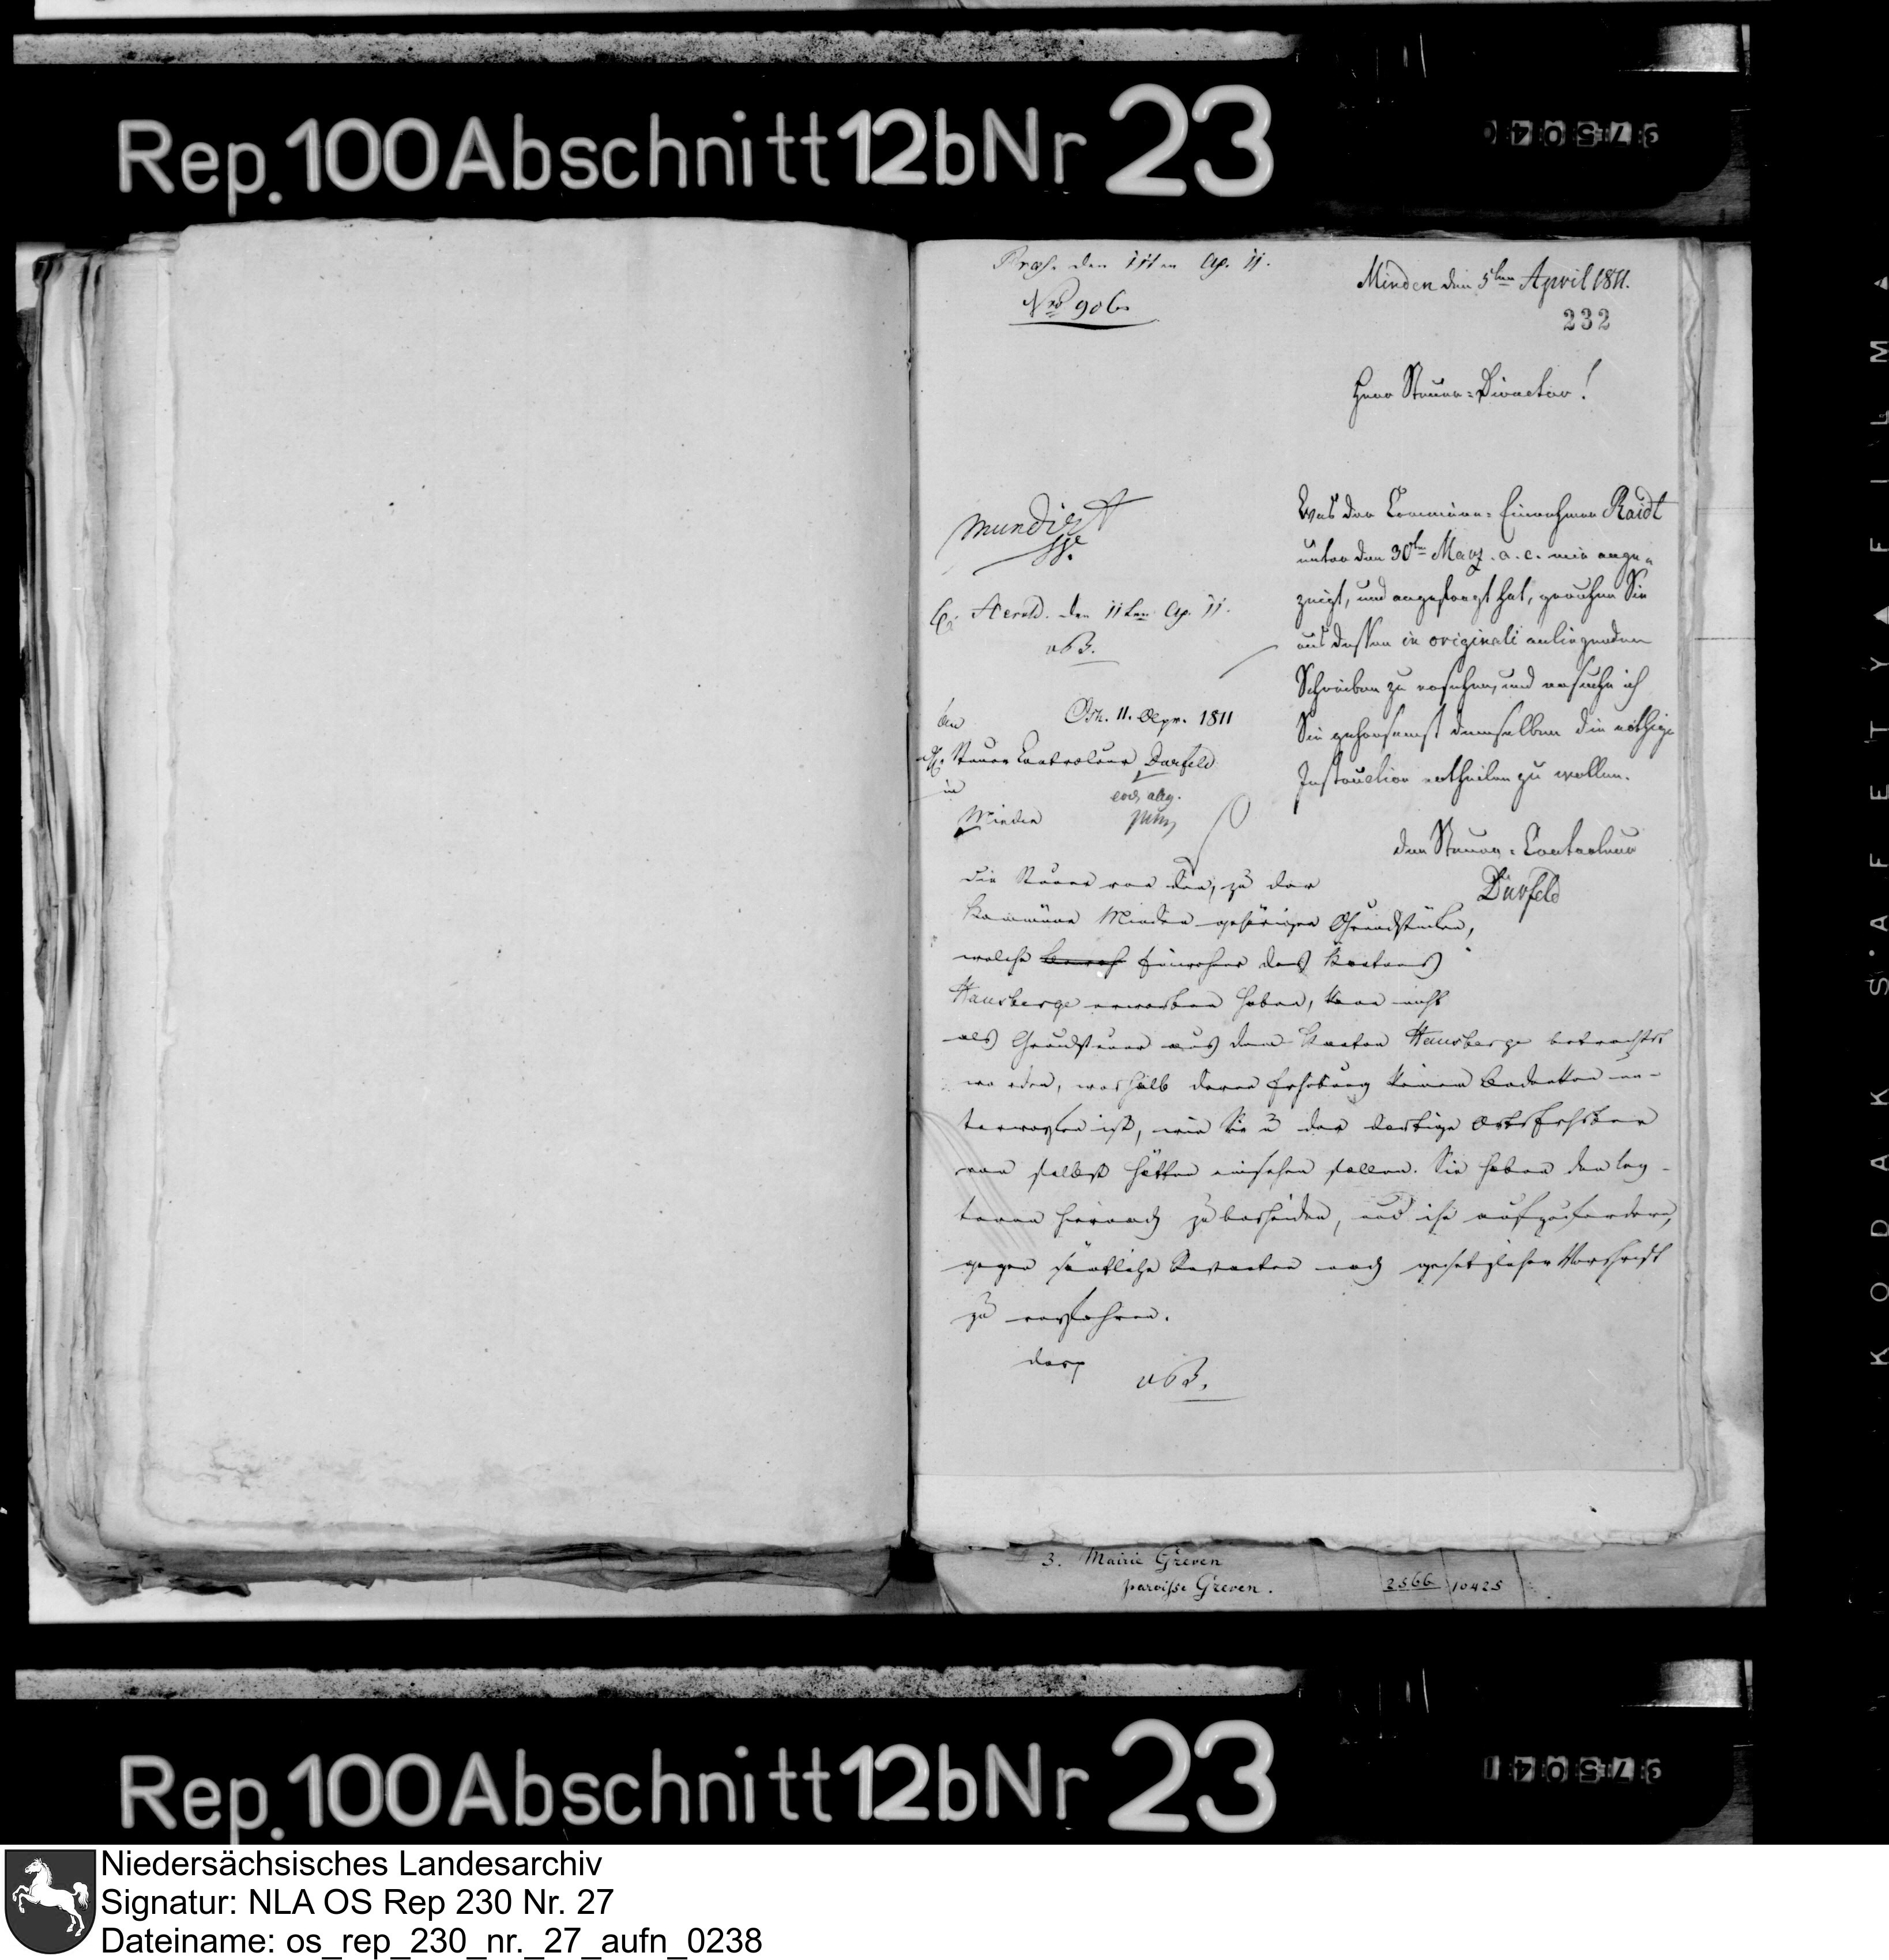 Rep. 100 Abschnitt 12b Nr 23
Praes. den 11ten Ap. 11.
Nro 906.
Minden den 5ten April 1811.
232
Herr Steuer-Director!
mundirt
Was der Commune-Einnehmer Raidt
unter den 30ten Maerz. a. c. mir ange-
zeigt, und angefragt hat, geruhen Sie
aus dessen in originali anliegenden
Schreiben zu ersehen, und ersuche ich
Sie gehorsamst demselben die nöthige
Instruction ertheilen zu wollen.
der Steuer-Controleur
Dürfeld
den 11ten Ap. 11.
Osn. 11. Apr. 1811
An
Steuer Controleur Dürfeld
in
Minden
die Steuer von den, zu der
Kommüne Minden gehörigen Grundstücken,
welche Einwohner des Kantons
Hausberge erworben haben, kan nicht
als Grundsteuer aus dem Kanton Hausberge betrachtet
werden, weshalb deren Erhebung keinem Bedenken un-
terworfen ist, wie Sie u der dortige Ortserheber
von selbst hätten einsehen sollen. Sie haben den letz-
teren hiernach zu bescheiden, und ihn aufzufordern,
gegen sämtliche Restanten nach gesetzlicher Vorschrift
zu verfahren.
3. Mairie Greven
paroisse Greven.
2566 10425
Rep. 100 Abschnitt 12b Nr 23
KODAK · SAFETY FILM
Niedersächsisches Landesarchiv
Signatur: NLA OS Rep 230 Nr. 27
Dateiname: os_rep_230_nr._27_aufn_0238